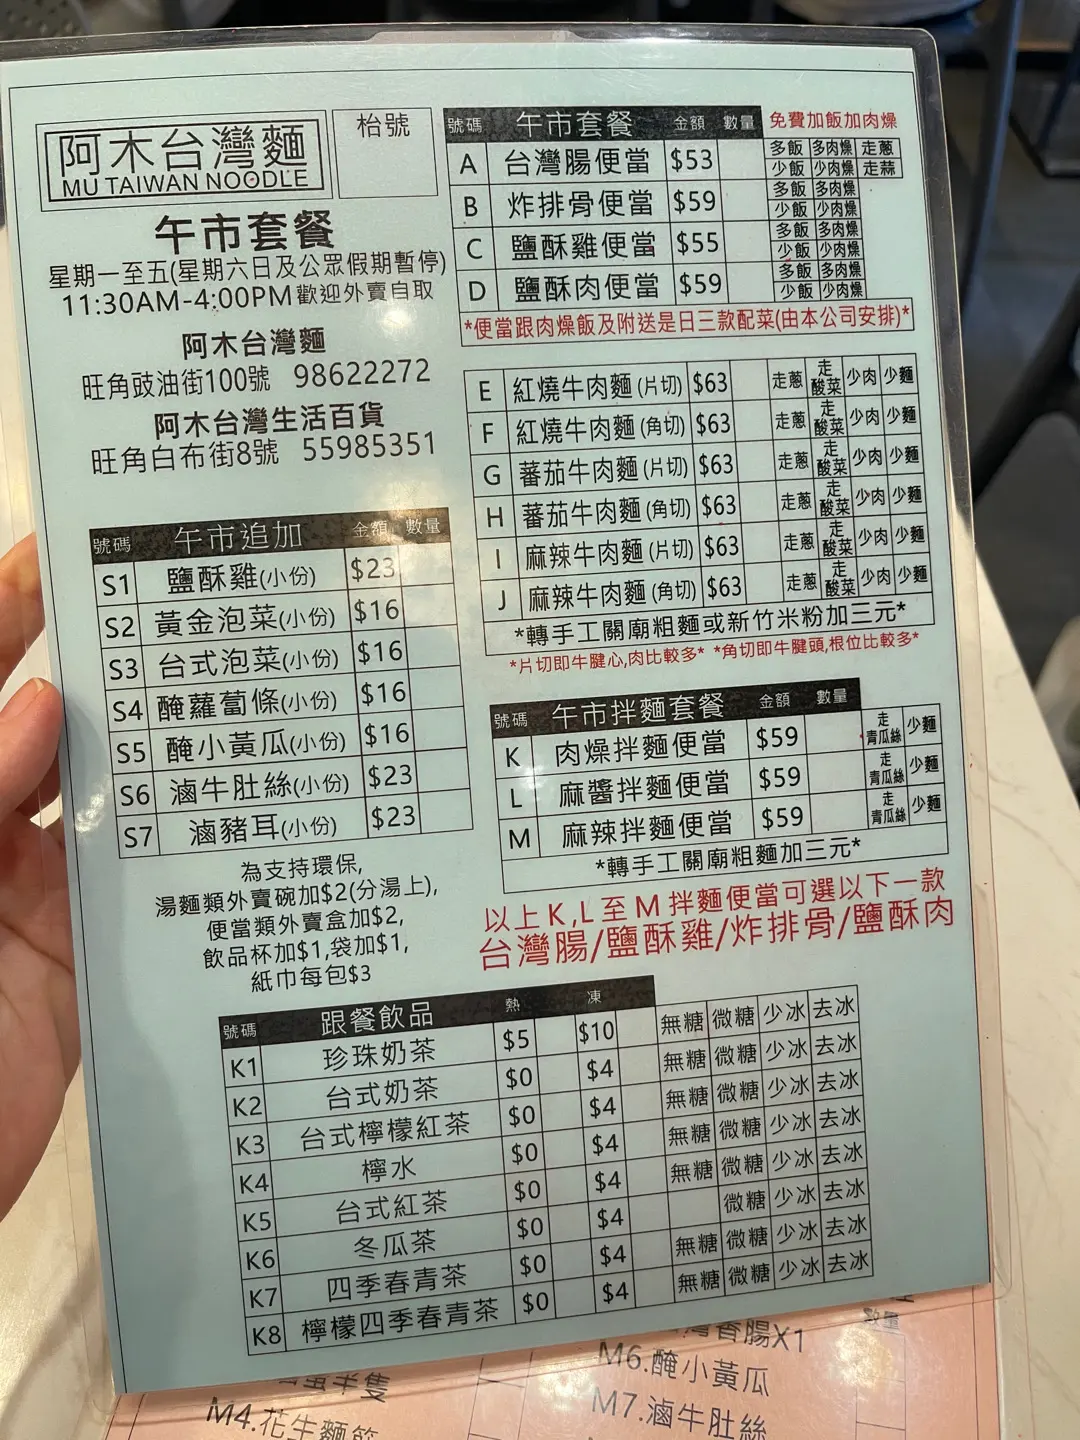 阿木台灣麵
MU TAIWAN NOODLE
枱號
午市套餐
星期一至五(星期六日及公眾假期暫停)
11:30AM-4:00PM歡迎外賣自取
阿木台灣麵
旺角豉油街100號 98622272
阿木台灣生活百貨
旺角白布街8號 55985351
號碼 午市追加 金額 數量
S1 鹽酥雞(小份) $23
S2 黃金泡菜(小份) $16
S3 台式泡菜(小份) $16
S4 醃蘿蔔條(小份) $16
S5 醃小黃瓜(小份) $16
S6 滷牛肚絲(小份) $23
S7 滷豬耳(小份) $23
為支持環保,
湯麵類外賣碗加$2(分湯上),
便當類外賣盒加$2,
飲品杯加$1,袋加$1,
紙巾每包$3
號碼 午市套餐 金額 數量 免費加飯加肉燥
A 台灣腸便當 $53 多飯 多肉燥 走蔥
少飯 少肉燥 走蒜
B 炸排骨便當 $59 多飯 多肉燥
少飯 少肉燥
C 鹽酥雞便當 $55 多飯 多肉燥
少飯 少肉燥
D 鹽酥肉便當 $59 多飯 多肉燥
少飯 少肉燥
*便當跟肉燥飯及附送是日三款配菜(由本公司安排)*
E 紅燒牛肉麵(片切) $63 走蔥 走酸菜 少肉 少麵
F 紅燒牛肉麵(角切) $63 走蔥 走酸菜 少肉 少麵
G 蕃茄牛肉麵(片切) $63 走蔥 走酸菜 少肉 少麵
H 蕃茄牛肉麵(角切) $63 走蔥 走酸菜 少肉 少麵
I 麻辣牛肉麵(片切) $63 走蔥 走酸菜 少肉 少麵
J 麻辣牛肉麵(角切) $63 走蔥 走酸菜 少肉 少麵
*轉手工關廟粗麵或新竹米粉加三元*
*片切即牛腱心,肉比較多* *角切即牛腱頭,根位比較多*
號碼 午市拌麵套餐 金額 數量
K 肉燥拌麵便當 $59 走青瓜絲 少麵
L 麻醬拌麵便當 $59 走青瓜絲 少麵
M 麻辣拌麵便當 $59 走青瓜絲 少麵
*轉手工關廟粗麵加三元*
以上K,L至M拌麵便當可選以下一款
台灣腸/鹽酥雞/炸排骨/鹽酥肉
號碼 跟餐飲品 熱 凍
K1 珍珠奶茶 $5 $10 無糖 微糖 少冰 去冰
K2 台式奶茶 $0 $4 無糖 微糖 少冰 去冰
K3 台式檸檬紅茶 $0 $4 無糖 微糖 少冰 去冰
K4 檸水 $0 $4 無糖 微糖 少冰 去冰
K5 台式紅茶 $0 $4 無糖 微糖 少冰 去冰
K6 冬瓜茶 $0 $4 微糖 少冰 去冰
K7 四季春青茶 $0 $4 無糖 微糖 少冰 去冰
K8 檸檬四季春青茶 $0 $4 無糖 微糖 少冰 去冰
數量
香腸X1
半隻
M6.醃小黃瓜
M4.花生麵筋
M7.滷牛肚絲